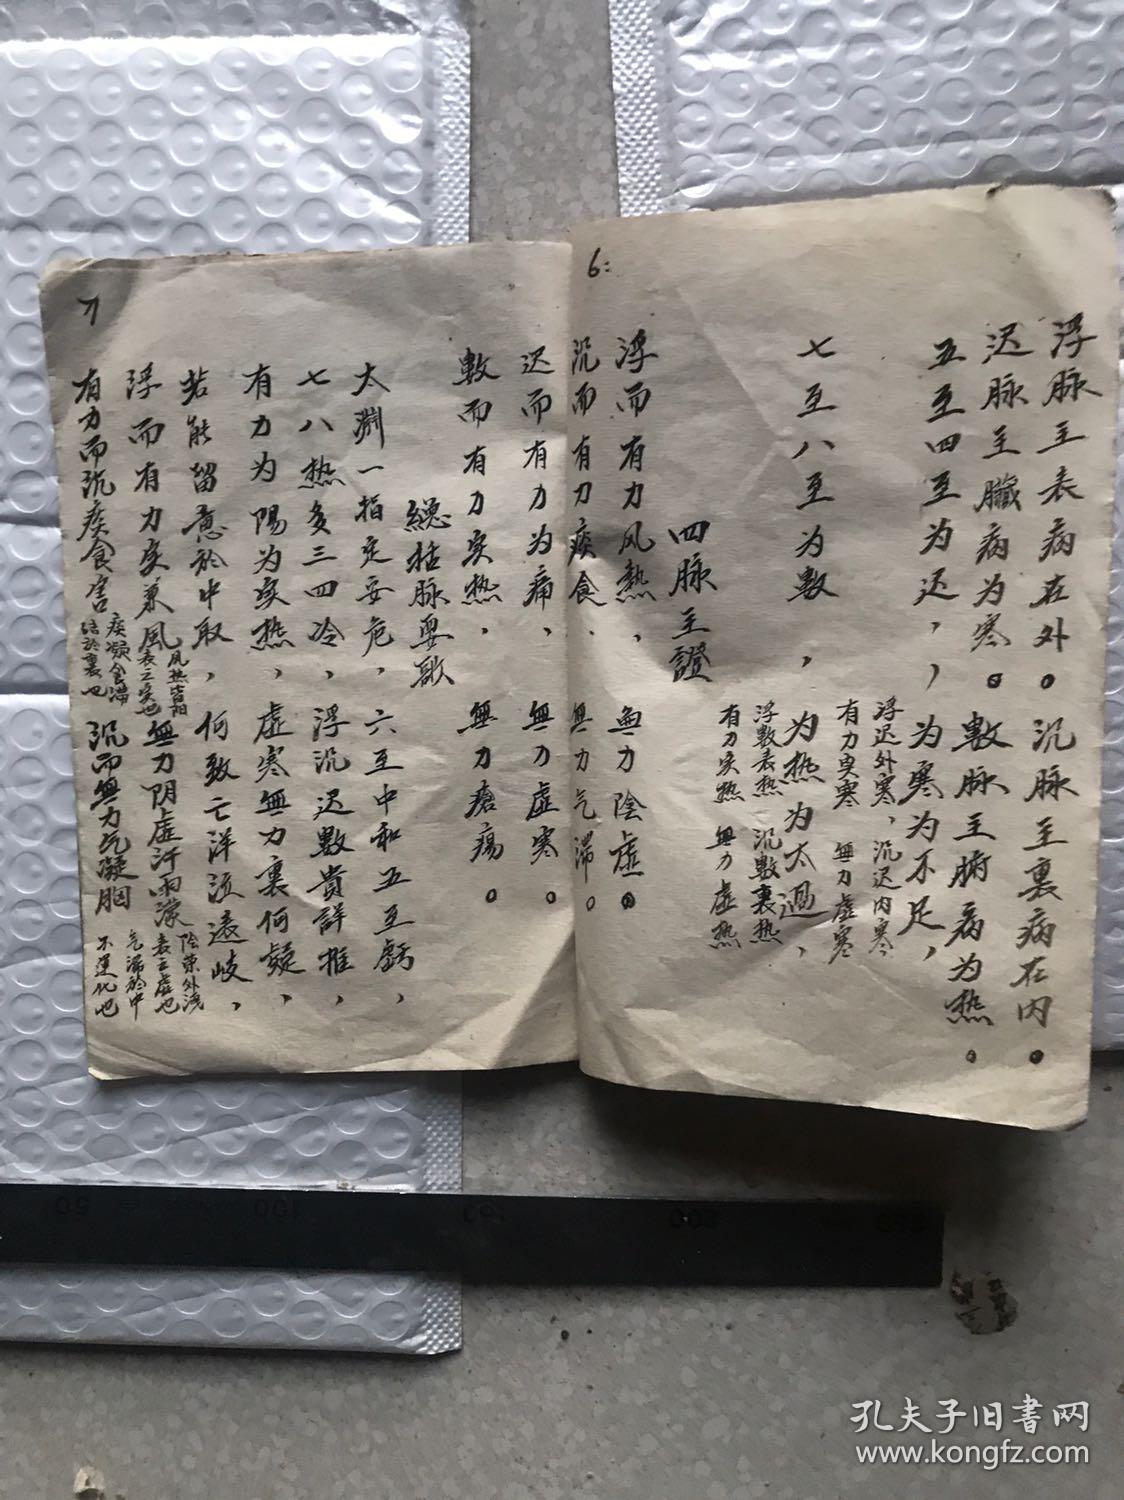 6:
浮脉主表病在外。沉脉主裏病在内。
迟脉主臟病为寒。數脉主腑病为热。
五至四至为迟，为寒为不足，
浮迟外寒、沉迟内寒
有力实寒 無力虚寒
七至八至为數，为热为太過、
浮數表热 沉數裏热
有力实热 無力虚热
四脉主證
浮而有力风熱，無力陰虚。
沉而有力痰食、無力气滞。
迟而有力为痛，無力虚寒。
數而有力实热，無力瘡瘍。
7
總括脉要歌
太渊一指定安危，六至中和五至虧，
七八热多三四冷，浮沉迟數貴詳推，
有力为陽为实热，虚寒無力裏何疑，
若能留意於中取，何致亡洋泣遠岐，
浮而有力实兼風
风热皆阳
表之实也
無力阴虚汗雨濛
陰荣外洩
表之虚也
有力而沉痰食害
痰凝食滞
结於裏也
沉而無力气凝胸
气滞於中
不運化也
孔夫子旧書网
www.kongfz.com